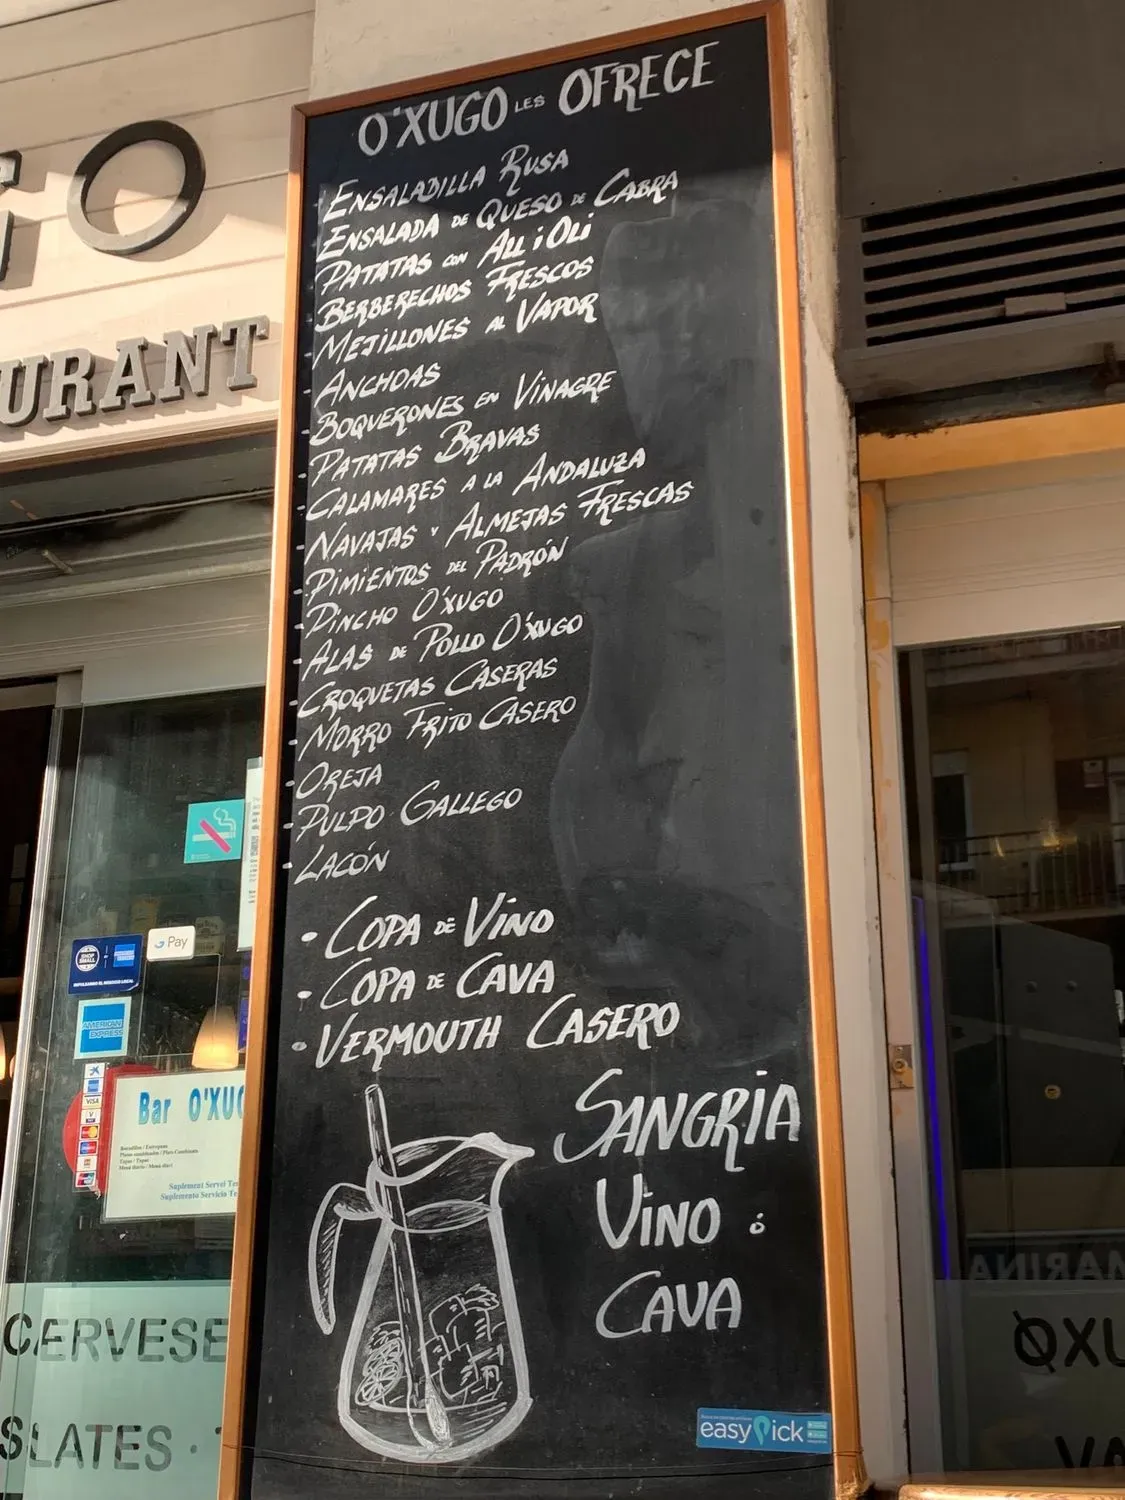 O
URANT
O'XUGO LES OFRECE
- ENSALADILLA RUSA
- ENSALADA DE QUESO DE CABRA
- PATATAS CON ALL i OLi
- BERBERECHOS FRESCOS
- MEJILLONES AL VAPOR
- ANCHOAS
- BOQUERONES EN VINAGRE
- PATATAS BRAVAS
- CALAMARES A LA ANDALUZA
- NAVAJAS Y ALMEJAS FRESCAS
- PIMIENTOS DEL PADRÓN
- PINCHO O'XUGO
- ALAS DE POLLO O'XUGO
- CROQUETAS CASERAS
- MORRO FRITO CASERO
- OREJA
- PULPO GALLEGO
- LACÓN
• COPA DE VINO
• COPA DE CAVA
• VERMOUTH CASERO
SANGRIA
VINO ó
CAVA
easypick
G Pay
SHOP SMALL
AMERICAN EXPRESS
VISA
Bar O'XUG
Bocadillos / Entrepans
Platos combinados / Plats Combinats
Tapas / Tapas
Menú diario / Menú diari
Suplement Servei Ter
Suplemento Servicio Te
CERVESE
SLATES ·
MARINA
OXU
VA